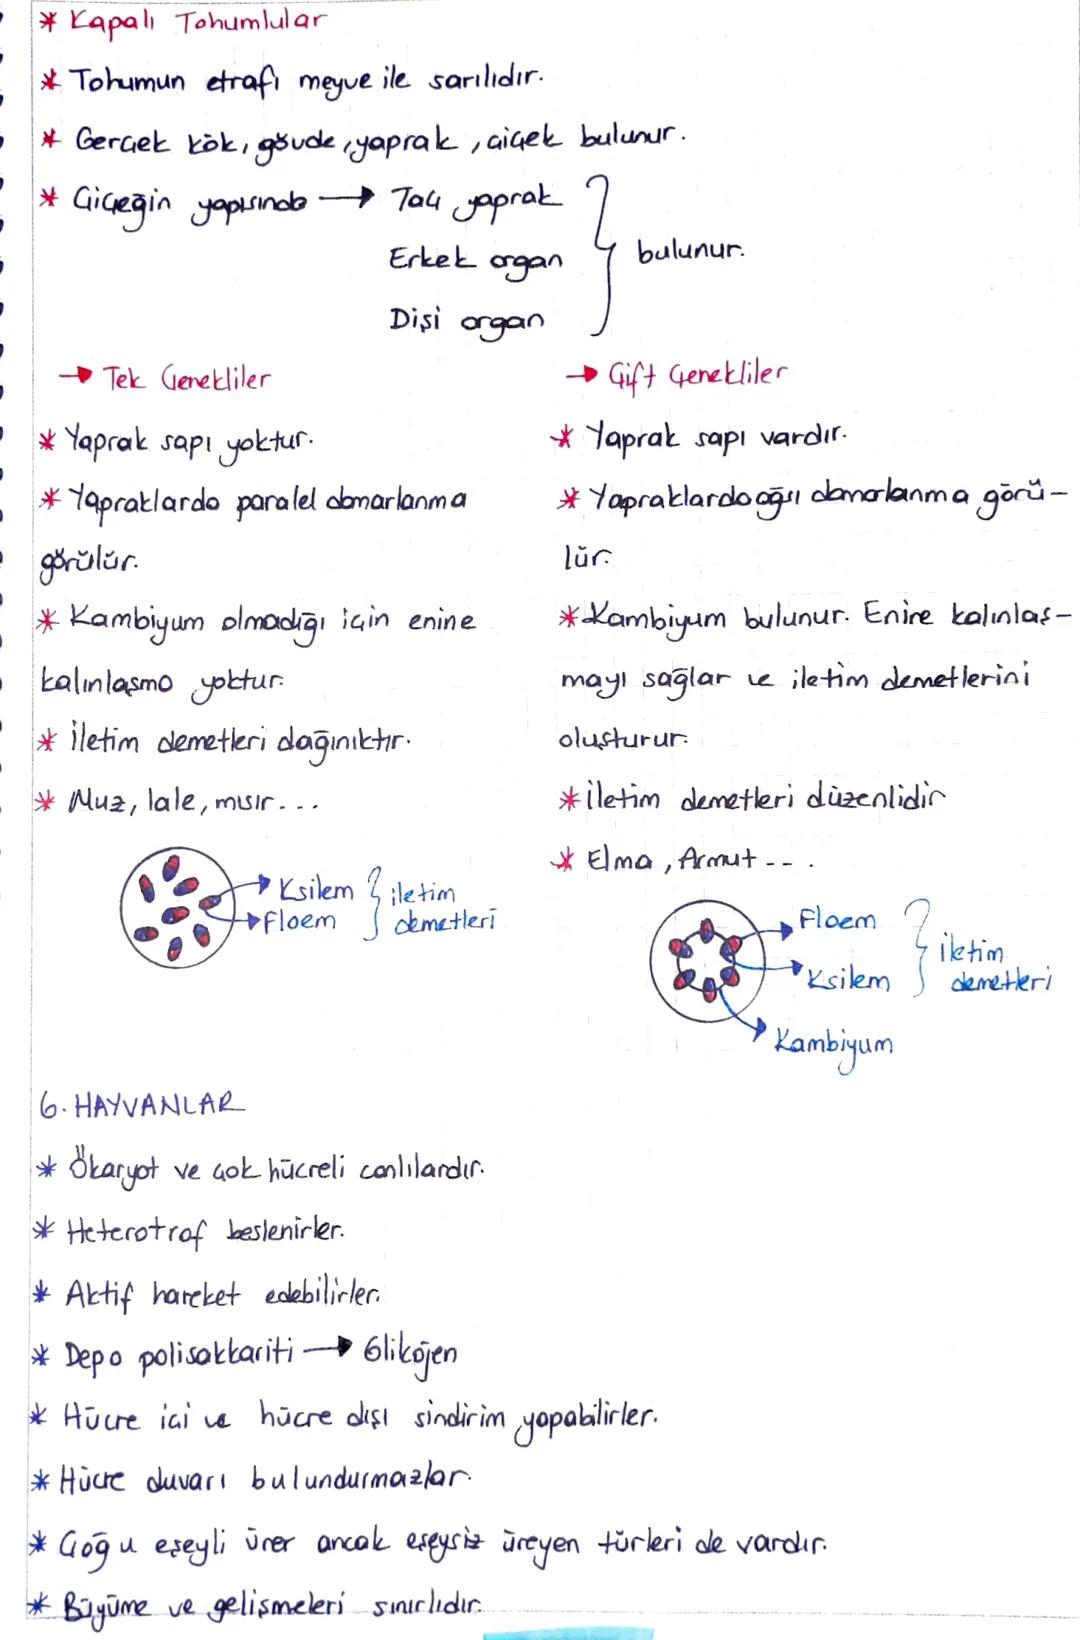 * Kapalı Tohumlular
* Tohumun etrafı meyve ile sarılıdır.
* Gerçek kök, gövde, yaprak, çiçek bulunur.
* Çiçeğin yapısında → Taç yaprak
Erkek organ
Dişi organ
bulunur.
→ Tek Çenekliler
* Yaprak sapı yoktur.
* Yapraklarda paralel damarlanma
görülür.
* Kambiyum olmadığı için enine
kalınlaşma yoktur.
* İletim demetleri dağınıktır.
* Muz, lale, mısır...
Ksilem
Floem
iletim
demetleri
→ Çift Çenekliler
* Yaprak sapı vardır.
* Yapraklarda ağsı damarlanma görü-
lür.
* Kambiyum bulunur. Enine kalınlaş-
mayı sağlar ve iletim demetlerini
oluşturur.
* İletim demetleri düzenlidir
* Elma, Armut...
Floem
Ksilem
iletim
demetleri
Kambiyum
6. HAYVANLAR
* Ökaryot ve çok hücreli canlılardır.
* Heterotrof beslenirler.
* Aktif hareket edebilirler.
* Depo polisakkariti → Glikojen
* Hücre içi ve hücre dışı sindirim yapabilirler.
* Hücre duvarı bulundurmazlar.
* Çoğu eşeyli ürer ancak eşeysiz üreyen türleri de vardır.
* Büyüme ve gelişmeleri sınırlıdır.